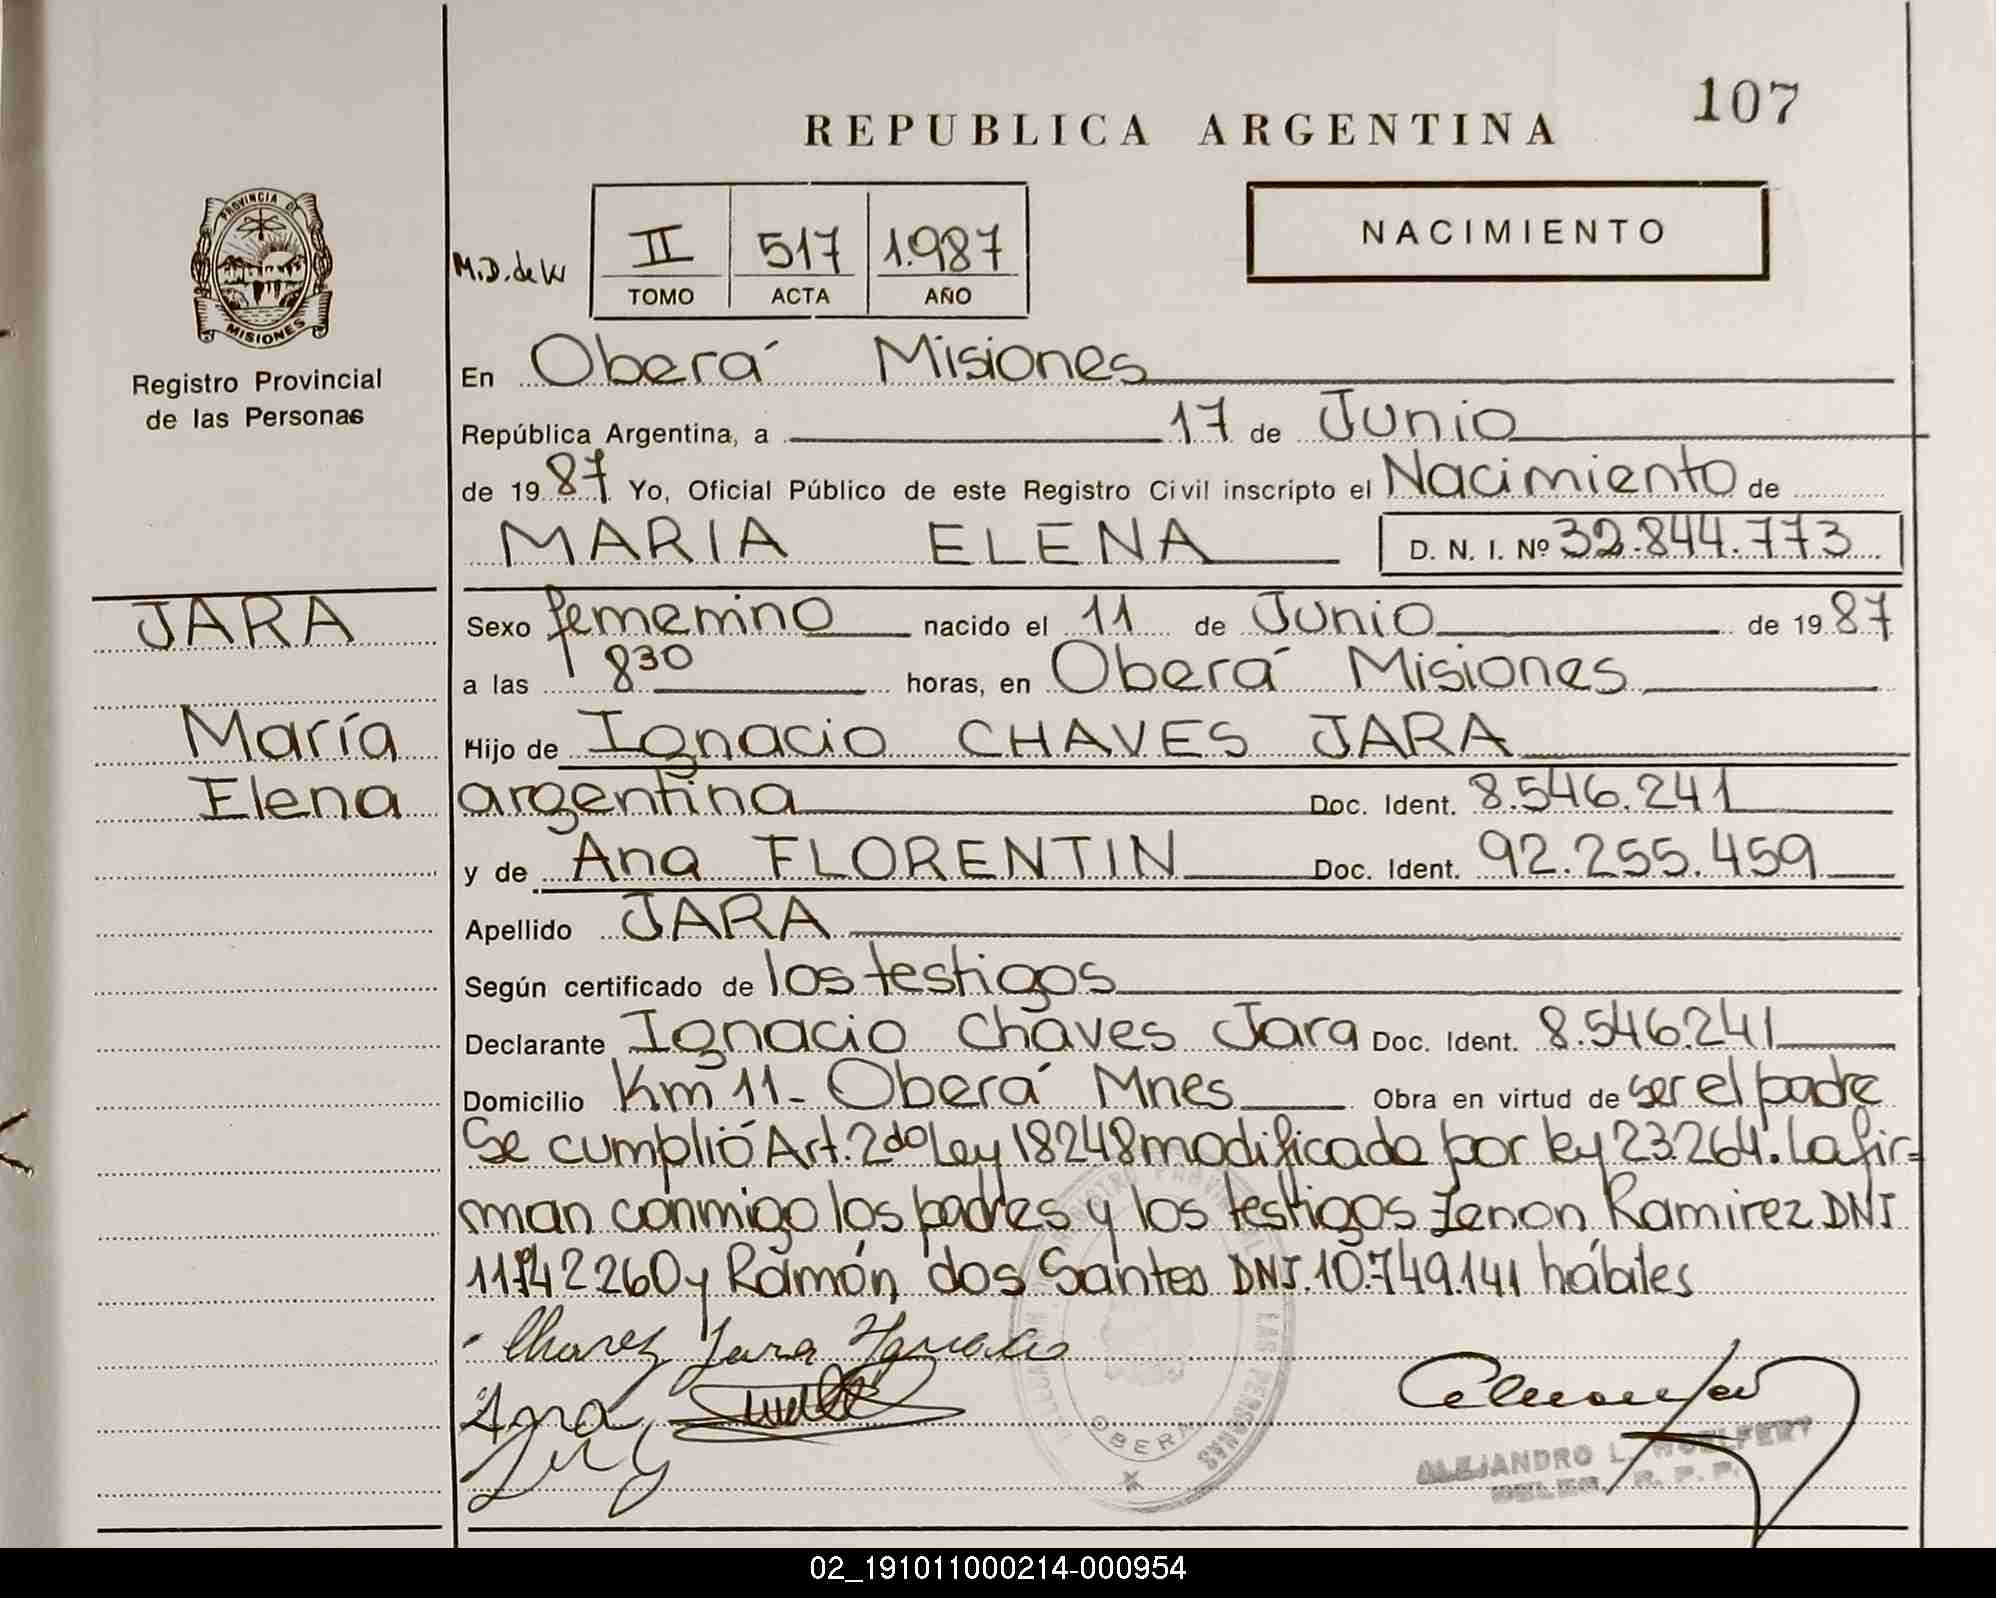 107
REPUBLICA ARGENTINA
NACIMIENTO
M.D. de W
II 517 1.987
TOMO ACTA AÑO
PROVINCIA DE
MISIONES
Registro Provincial
de las Personas
En Oberá Misiones
República Argentina, a 17 de Junio
de 1987 Yo, Oficial Público de este Registro Civil inscripto el Nacimiento de
MARIA ELENA D. N. I. Nº 32.844.773
JARA
María
Elena
Sexo femenino nacido el 11 de Junio de 1987
a las 8³⁰ horas, en Oberá Misiones
Hijo de Ignacio CHAVES JARA
argentina Doc. Ident. 8.546.241
y de Ana FLORENTIN Doc. Ident. 92.255.459
Apellido JARA
Según certificado de los testigos
Declarante Ignacio Chaves Jara Doc. Ident. 8.546.241
Domicilio Km 11- Oberá Mnes Obra en virtud de ser el padre
Se cumplió Art. 2do Ley 18248 modificada por ley 23.264. La fir=
man conmigo los padres y los testigos Zenon Ramirez DNI
11742260 y Ramón dos Santos DNI. 10.749.141 hábiles
Chavez Jara Ignacio
Ana
REGISTRO PROVINCIAL
LAS PERSONAS
OBERA
ALEJANDRO L. WOELFERT
R. P. P.
02_191011000214-000954